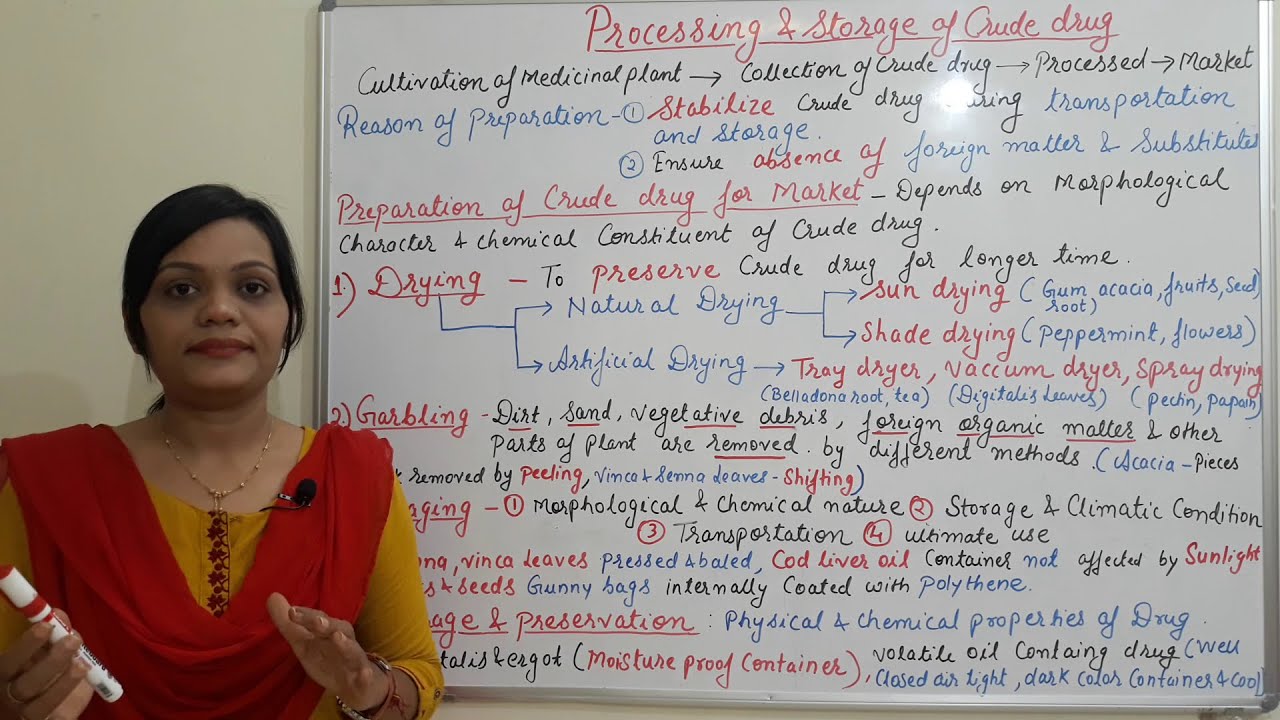 Processing & Storage of Crude drug
Cultivation of Medicinal plant → Collection of Crude drug → Processed → Market
Reason of Preparation - ① Stabilize Crude drug during transportation
and storage.
② Ensure absence of foreign matter & Substitutes
Preparation of Crude drug for Market - Depends on Morphological
Character & chemical Constituent of Crude drug.
1.) Drying - To preserve Crude drug for longer time.
Natural Drying → Sun drying (Gum acacia, fruits, Seed,
root)
Shade drying (Peppermint, flowers)
Artificial Drying → Tray dryer, Vaccum dryer, Spray drying
(Belladona root, tea) (Digitalis leaves) (Pectin, papain)
2.) Garbling - Dirt, Sand, vegetative debris, foreign organic matter & other
parts of plant are removed by different methods. (Acacia - Pieces
removed by peeling, Vinca & Senna leaves - Shifting)
ging - ① Morphological & Chemical nature ② Storage & Climatic Condition
③ Transportation ④ ultimate use
na, vinca leaves pressed & baled, Cod liver oil Container not affected by Sunlight
s & seeds Gunny bags internally Coated with Polythene.
age & preservation : Physical & chemical properties of Drug.
talis & ergot (Moisture proof Container), volatile oil Containg drug (Well
Closed air tight, dark color Container & Cool)